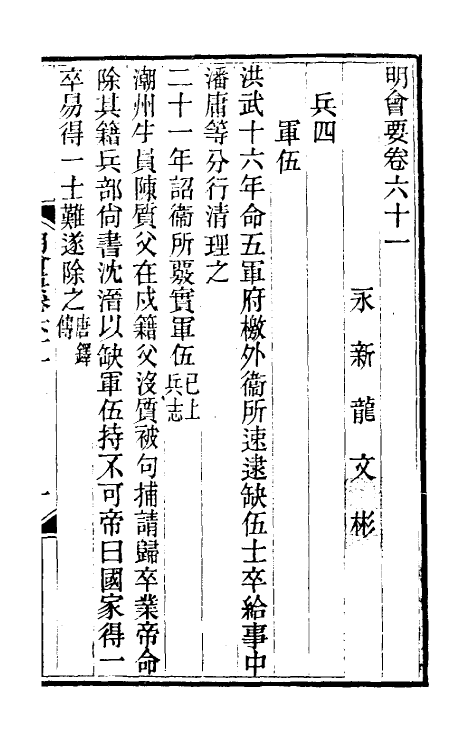 明會要卷六十一
永新龍文彬
兵四
軍伍
洪武十六年命五軍府檄外衞所速逮缺伍士卒給事中
潘庸等分行清理之
二十一年詔衞所覈實軍伍已上兵志
潮州生員陳質父在戍籍父沒質被句捕請歸卒業帝命
除其籍兵部尙書沈溍以缺軍伍持不可帝曰國家得一
卒易得一士難遂除之唐鐸傳